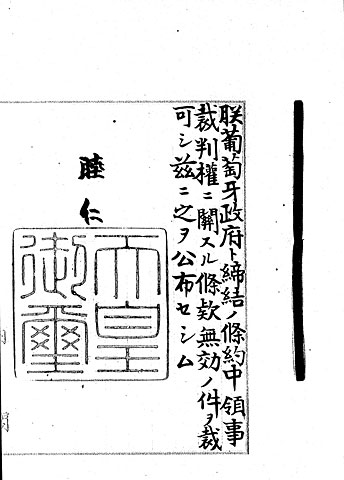 朕葡萄牙政府ト締結ノ條約中領事
裁判權ニ關スル條款無効ノ件ヲ裁
可シ茲ニ之ヲ公布セシム
睦仁
天皇
御璽